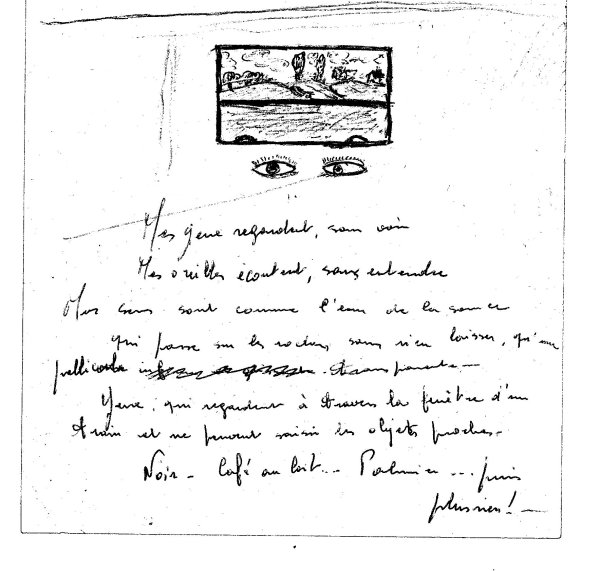 Mes yeux regardent, sans voir
Mes oreilles écoutent, sans entendre
Mes sens sont comme l'eau de la source
qui passe sur les rochers sans rien laisser, qu'une
pellicule transparente —
Yeux, qui regardent à travers la fenêtre d'un
train et ne peuvent saisir les objets proches —
Noir — Café au lait... Palmier ... puis
plus rien! —